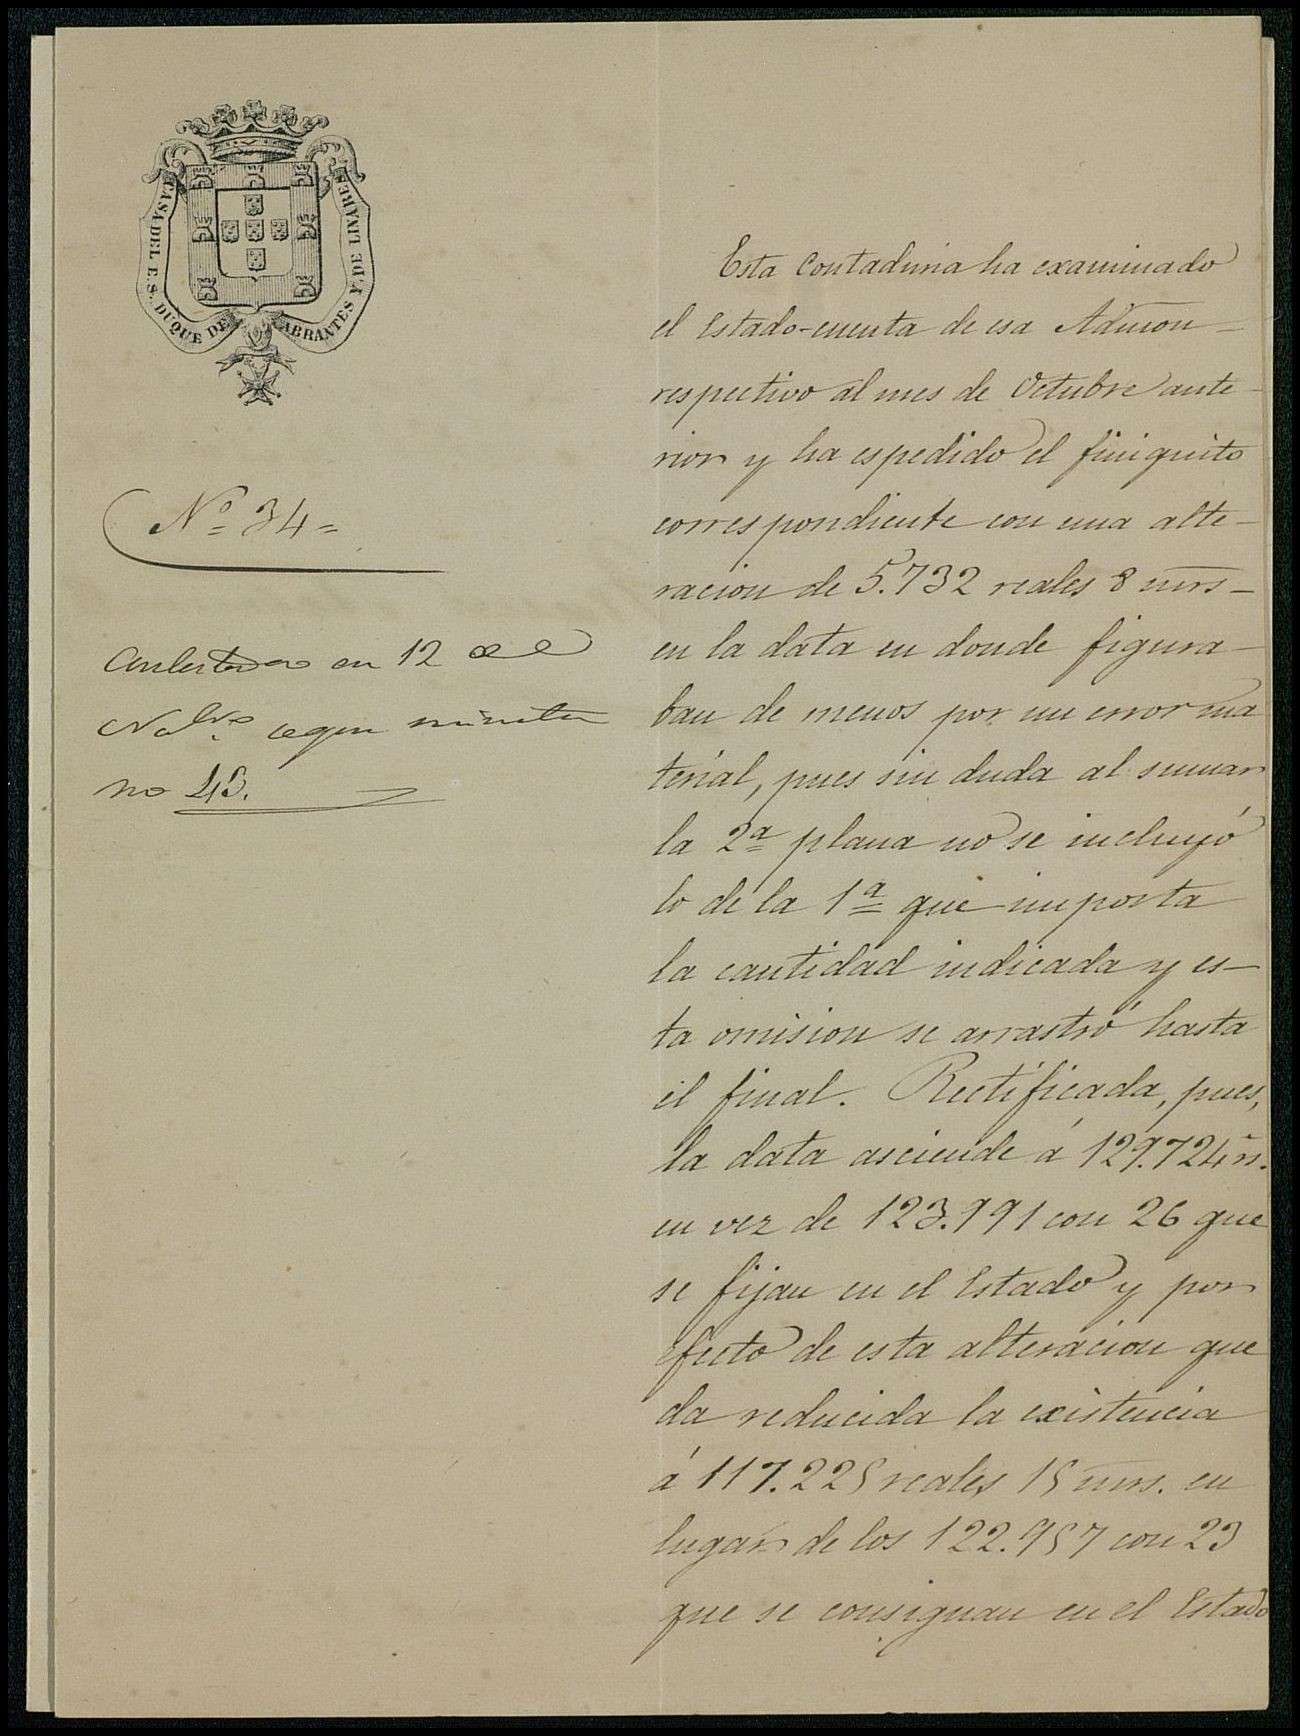 CASA DEL E. S. DUQUE DE ABRANTES Y DE LINARES
Nº 34=
Contestado en 12 de
Nobre. segun minuta
no 43.
Esta Contaduria ha examinado
el Estado-cuenta de esa Admon-
respectivo al mes de Octubre ante-
rior y ha espedido el finiquito
correspondiente con una alte-
racion de 5.732 reales 8 mrs-
en la data en donde figura-
ban de menos por un error ma
terial, pues sin duda al sumar
la 2ª plana no se incluyó
lo de la 1ª que importa
la cantidad indicada y es-
ta omision se arrastró hasta
el final. Rectificada, pues,
la data asciende á 129.724 rs.
en vez de 123.991 con 26 que
se fijan en el Estado y por
efecto de esta alteracion que
da reducida la existencia
á 117.225 reales 15 mrs. en
lugar de los 122.957 con 23
que se consignan en el Estado